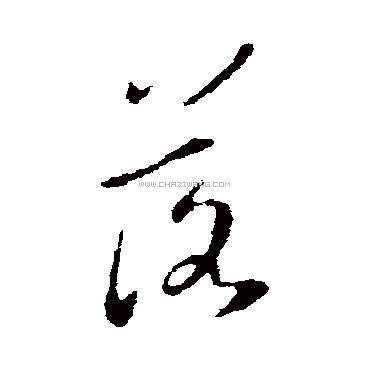 落
WWW.CHAZIWANG.COM